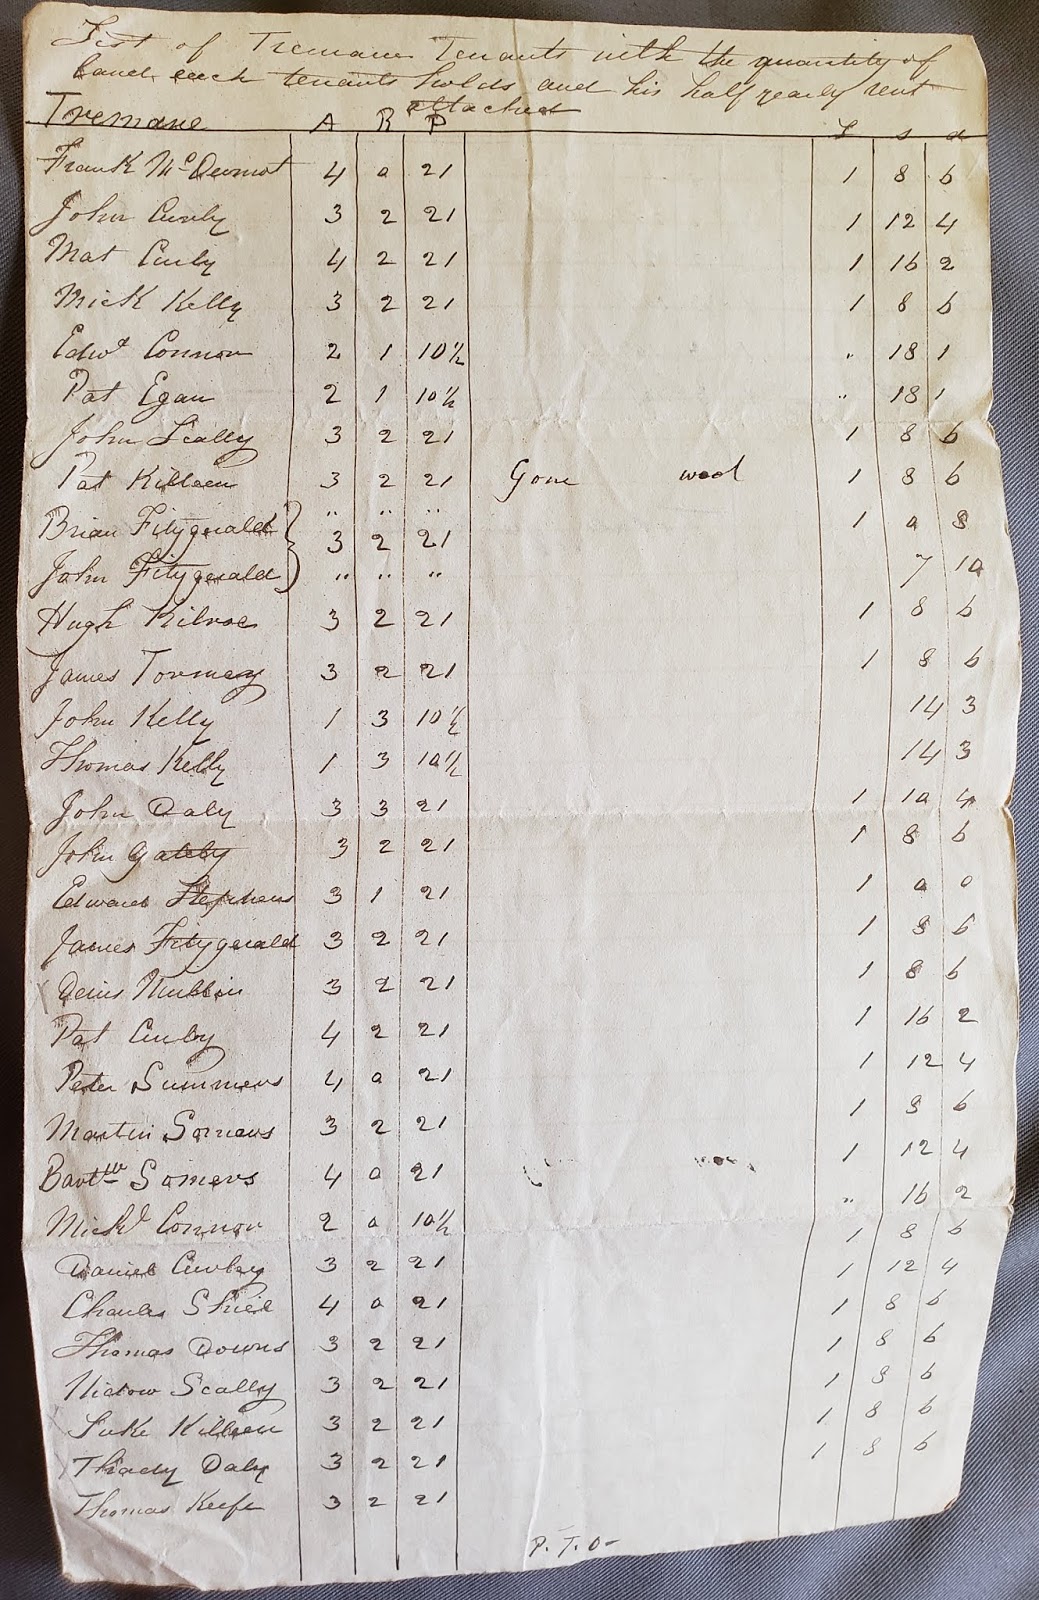 List of Tremane Tenants with the quantity of
land each tenants holds and his half yearly rent
attached
Tremane A R P £ s d
Frank McDermot 4 0 21 1 8 6
John Curly 3 2 21 1 12 4
Mat Curly 4 2 21 1 16 2
Mick Kelly 3 2 21 1 8 6
Edwd Connor 2 1 10½ " 18 1
Pat Egan 2 1 10½ " 18 1
John Scally 3 2 21 1 8 6
Pat Killeen 3 2 21 Gone wood 1 8 6
Brian Fitzgerald } " " " 1 0 8
3 2 21
John Fitzgerald " " " 7 10
Hugh Kilroe 3 2 21 1 8 6
James Tormey 3 2 21 1 8 6
John Kelly 1 3 10½ 14 3
Thomas Kelly 1 3 10½ 14 3
John Daly 3 3 21 1 10 4
John Gately 3 2 21 1 8 6
Edward Stephens 3 1 21 1 0 0
James Fitzgerald 3 2 21 1 8 6
Denis Mullin 3 2 21 1 8 6
Pat Curly 4 2 21 1 16 2
Peter Summers 4 0 21 1 12 4
Martin Somers 3 2 21 1 8 6
Bartlw Somers 4 0 21 1 12 4
Mickl Connor 2 0 10½ " 16 2
Daniel Curley 3 2 21 1 8 6
Charles Shiel 4 0 21 1 12 4
Thomas Downs 3 2 21 1 8 6
Scally 3 2 21 1 8 6
Luke Killeen 3 2 21 1 8 6
Thady Daly 3 2 21 1 8 6
Thomas Keefe 3 2 21 1 8 6
P. T. O-